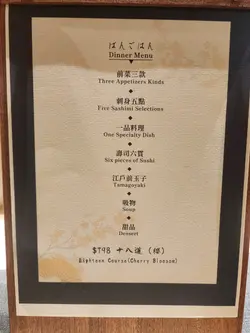 ばんごはん
Dinner Menu
前菜三款
Three Appetizers Kinds
刺身五點
Five Sashimi Selections
一品料理
One Specialty Dish
壽司六貫
Six pieces of Sushi
江戶前玉子
Tamagoyaki
吸物
Soup
甜品
Dessert
$798 十八道 (櫻)
Eighteen Course(Cherry Blossom)